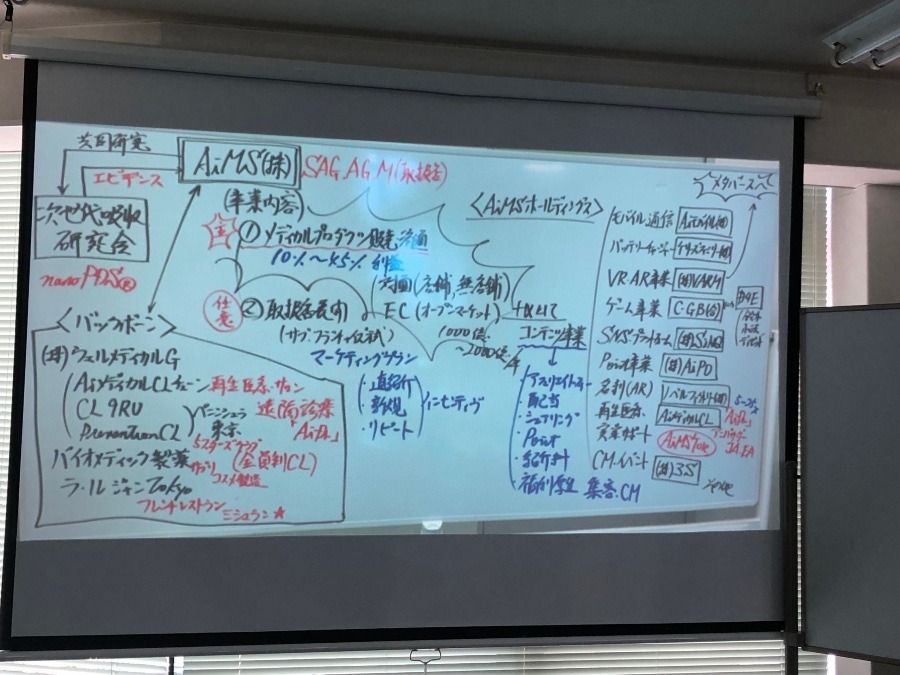 共同研究
エビデンス
AiMS(株)
SAG.AG.M(取扱舎)
次世代吸収
研究会
nanoPDS®
(事業内容)
① メディカルプロダクツ販売・流通
10%〜45% 利益
(店舗,無店舗)
EC (オープンマーケット)
1000億
〜2000億/年
任意
② 取扱舎案内
マーケティングプラン
・直紹介
・新規
・リピート
インセティヴ
<AiMSホールディングス>
コンテンツ事業
・アフェリエイト
・配当
・シェアリング
・Point
・紹介料
・福利厚生
集客.CM
メタバース
モバイル通信
バッテリーチャージ
VR.AR事業
ゲーム事業
C・GB(株)
SNSプラットホーム
Point事業
(株)AiPO
名刺(AR)
再生医療
AiメディカルCL
実業サポート
CM.イベント
(株)3S
その他
<バックボーン>
(株)ウェルメディカルG
AiメディカルCLチェーン
再生医療・サロン
CL 9RU
PreventionCL
ペニンシュラ
東京
遠隔診療
「AiDr.」
5スターズクラブ
(会員制CL)
バイオメディック製薬
コスメ製造
ラ・ルジャンTokyo
フレンチレストラン
ミシュラン★